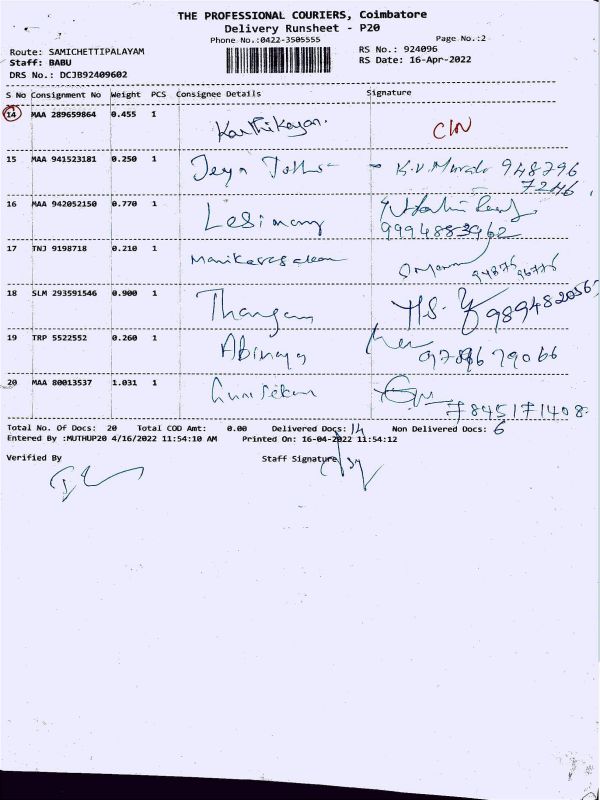 THE PROFESSIONAL COURIERS, Coimbatore
Delivery Runsheet - P20
Phone No.:0422-3505555 Page No.:2
Route: SAMICHETTIPALAYAM RS No.: 924096
Staff: BABU RS Date: 16-Apr-2022
DRS No.: DCJB92409602
S No Consignment No Weight PCS Consignee Details Signature
14 MAA 289659864 0.455 1 Karthikayan.
15 MAA 941523181 0.250 1 K.V. Murali 948796
7246
16 MAA 942052150 0.770 1
9994883962
17 TNJ 9198718 0.210 1
94875 96775
18 SLM 293591546 0.900 1 Thangam
19 TRP 5522552 0.260 1 Abinaya
20 MAA 80013537 1.031 1
7845171408
Total No. Of Docs: 20 Total COD Amt: 0.00 Delivered Docs: 14 Non Delivered Docs: 6
Entered By :MUTHUP20 4/16/2022 11:54:10 AM Printed On: 16-04-2022 11:54:12
Verified By Staff Signature